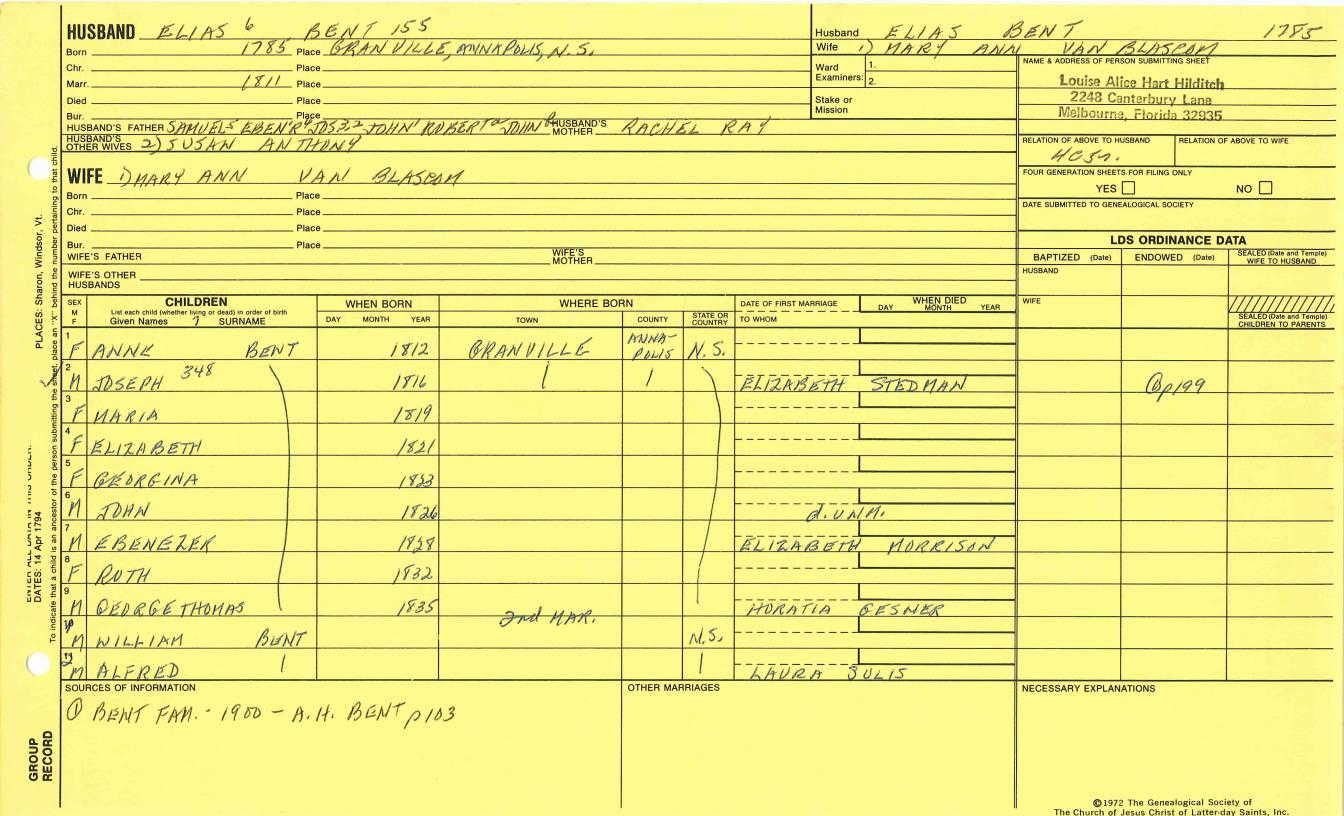 HUSBAND ELIAS 6 BENT 155
Born 1785 Place GRANVILLE, ANNAPOLIS, N.S.
Chr. Place
Marr. 1811 Place
Died Place
Bur. Place
HUSBAND'S FATHER SAMUEL5 EBEN'R4 JOS3,2 JOHN' ROBERTa JOHN HUSBAND'S MOTHER RACHEL RAY
HUSBAND'S OTHER WIVES 2) SUSAN ANTHONY
WIFE 1) MARY ANN VAN BLASCOM
Born Place
Chr. Place
Died Place
Bur. Place
WIFE'S FATHER WIFE'S MOTHER
WIFE'S OTHER HUSBANDS
Husband ELIAS BENT 1785
Wife 1) MARY ANN VAN BLASCOM
Ward Examiners: 1.
2.
Stake or Mission
NAME & ADDRESS OF PERSON SUBMITTING SHEET
Louise Alice Hart Hilditch
2248 Canterbury Lane
Melbourne, Florida 32935
RELATION OF ABOVE TO HUSBAND RELATION OF ABOVE TO WIFE
FOUR GENERATION SHEETS FOR FILING ONLY
YES NO
DATE SUBMITTED TO GENEALOGICAL SOCIETY
LDS ORDINANCE DATA
BAPTIZED (Date) ENDOWED (Date) SEALED (Date and Temple) WIFE TO HUSBAND
HUSBAND
WIFE
SEALED (Date and Temple) CHILDREN TO PARENTS
SEX M F CHILDREN WHEN BORN WHERE BORN DATE OF FIRST MARRIAGE WHEN DIED
List each child (whether living or dead) in order of birth
Given Names 7 SURNAME DAY MONTH YEAR TOWN COUNTY STATE OR COUNTRY TO WHOM DAY MONTH YEAR
1 F ANNE BENT 1812 GRANVILLE ANNAPOLIS N.S.
2 M JOSEPH 348 1816 ELIZABETH STEDMAN ① p199
3 F MARIA 1819
4 F ELIZABETH 1821
5 F GEORGINA 1823
6 M JOHN 1826 d. UNM.
7 M EBENEZER 1828 ELIZABETH MORRISON
8 F RUTH 1832
9 M GEORGE THOMAS 1835 HORATIA GESNER
2nd MAR.
M WILLIAM BENT N.S.
M ALFRED LAURA SULIS
SOURCES OF INFORMATION OTHER MARRIAGES NECESSARY EXPLANATIONS
① BENT FAM. - 1900 - A.H. BENT p103
©1972 The Genealogical Society of
The Church of Jesus Christ of Latter-day Saints, Inc.
GROUP RECORD
ENTER ALL DATA IN THIS ORDER:
DATES: 14 Apr 1794 PLACES: Sharon, Windsor, Vt.
To indicate that a child is an ancestor of the person submitting the sheet, place an "X" behind the number pertaining to that child.